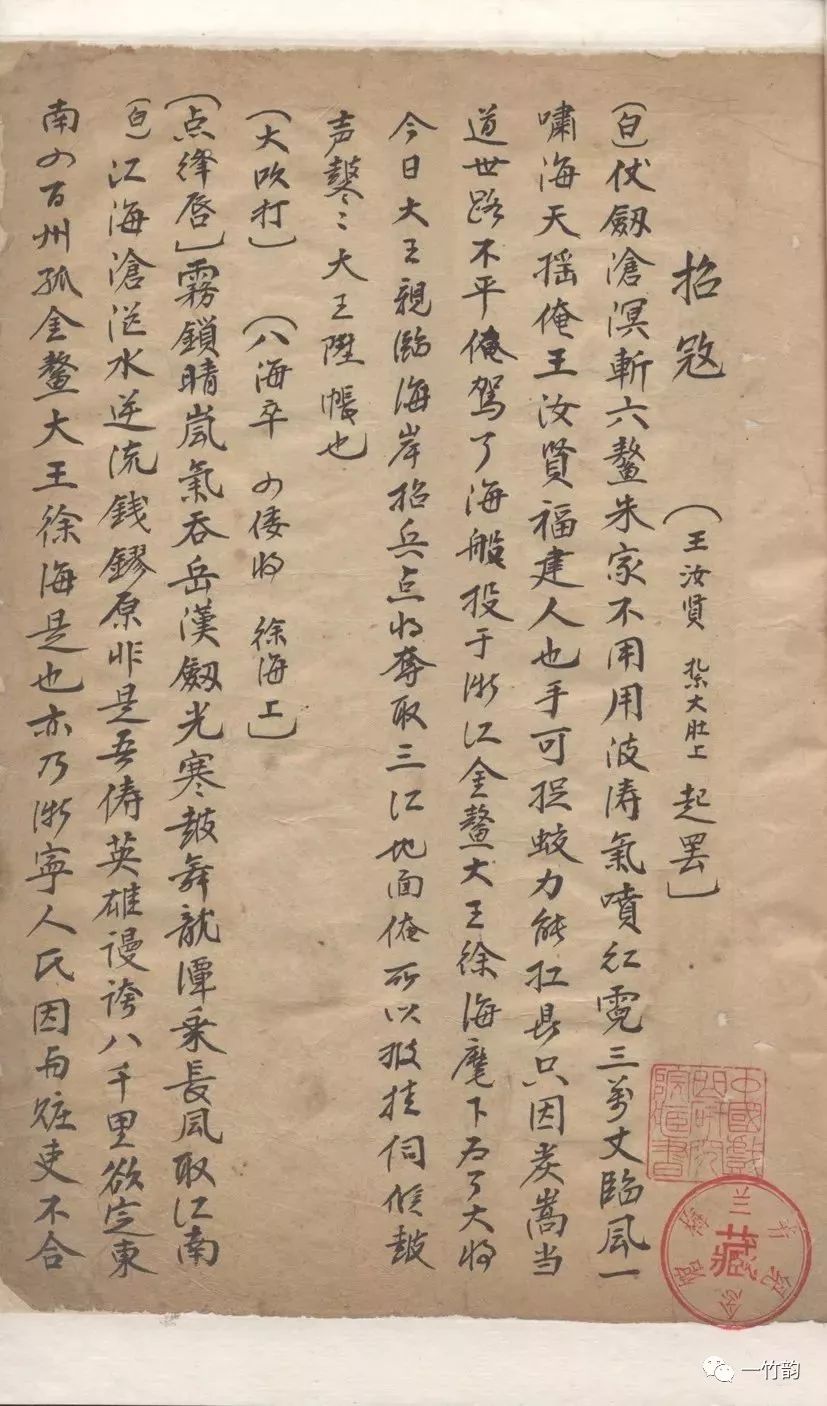 招寇
(王汝贤 紮大肚上 起罢)
(白)仗劔滄溟斬六鳌朱家不用用波涛氣噴红霓三萬丈臨風一
嘯海天摇俺王汝贤福建人也手可捉蛟力能扛昜只因炎嵩当
道世路不平俺驾了海船投于浙江金鳌大王徐海麾下为了大将
今日大王親臨海岸招兵点将奪取三江地面俺所以披挂伺候鼓
声鼕〻大王陞帳也
(大吹打) (八海卒 四倭将 徐海上)
(点绛唇)霧鎖晴嵐氣吞岳漢劔光寒鼓舞龍潭乘長風取江南
(白)江海滄溟水逆流銭鏐原非是吾俦英雄谩誇八千里欲定東
南四百州孤金鳌大王徐海是也亦乃浙寧人氏因与赃吏不合
中國戲曲研究院藏書
梅兰芳纪念馆藏
一竹韵